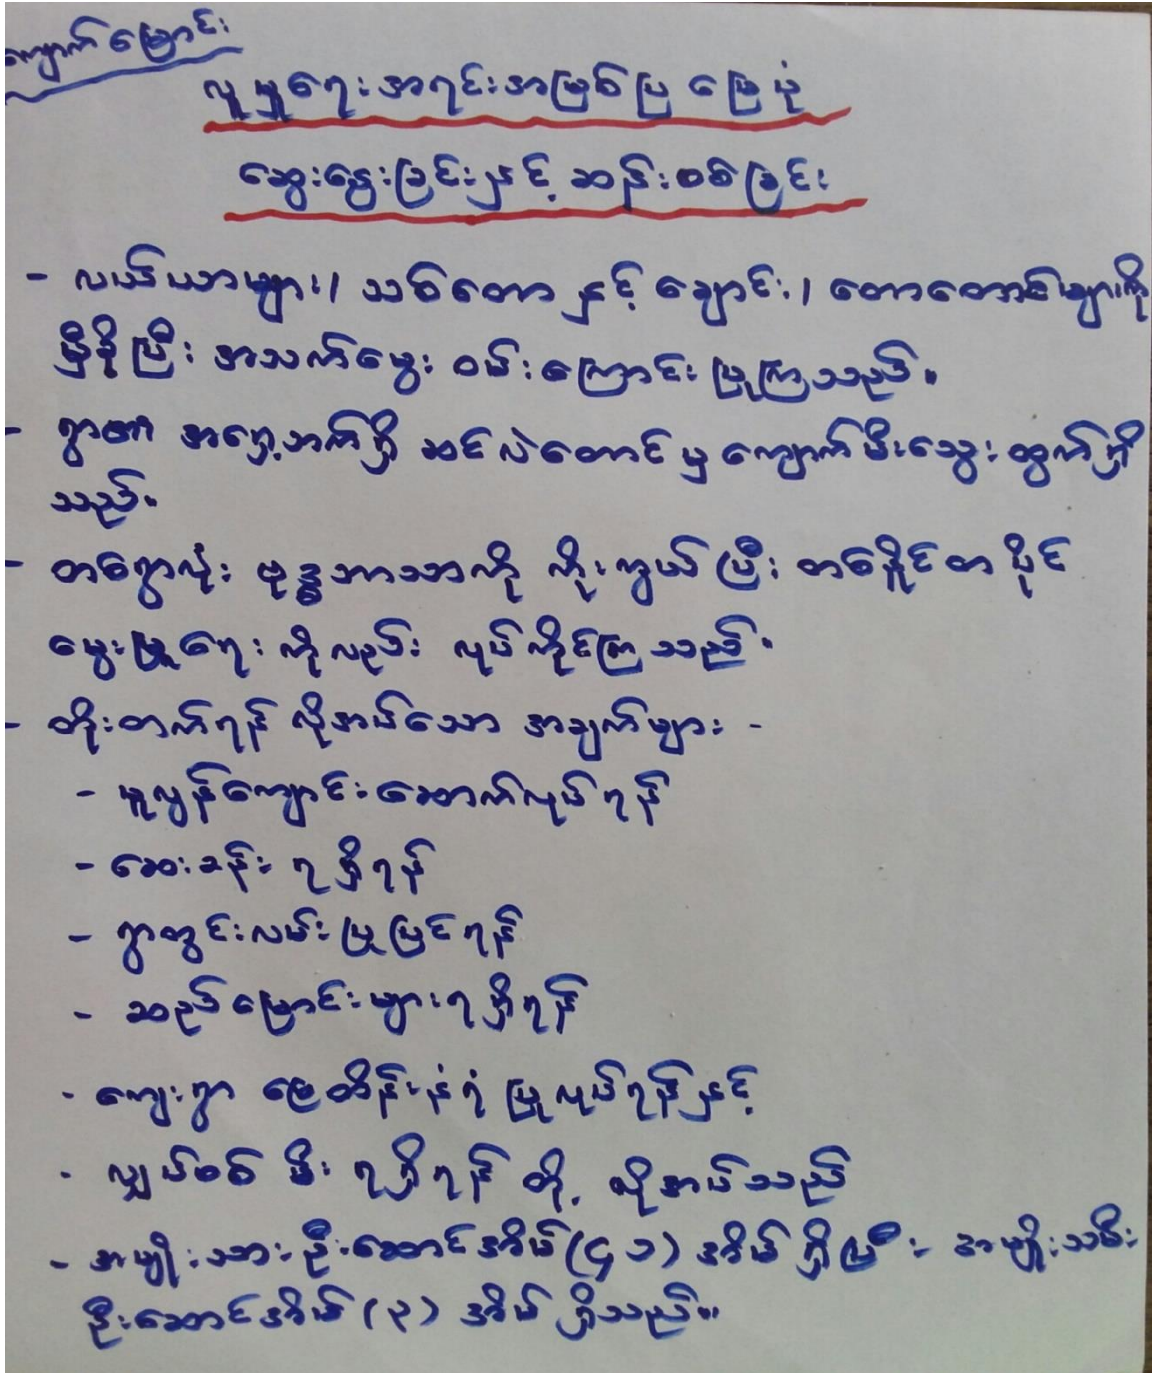 ကျောက်မြောင်း
လူမှုရေးအရင်းအမြစ်ပြ မြေပုံ
ဆွေးနွေးခြင်းနှင့် ဆန်းစစ်ခြင်း
- လယ်ယာများ၊ သစ်တော နှင့် ချောင်း၊ တောတောင်များကို
မှီခိုပြီး အသက်မွေး ဝမ်းကြောင်း ပြုကြသည်။
- ရွာ၏ အရှေ့ဘက်ရှိ ဆင်လဲတောင်မှ ကျောက်မီးသွေး ထွက်ရှိ
သည်။
- တစ်ရွာလုံး ဗုဒ္ဓဘာသာကို ကိုးကွယ်ပြီး တစ်ပိုင်တပိုင်
မွေးမြူရေး ကိုလည်း လုပ်ကိုင်ကြသည်။
- တိုးတက်ရန် လိုအပ်သော အချက်များ -
- မူလွန်ကျောင်းဆောက်လုပ်ရန်
- ဆေးခန်း ရရှိရန်
- ရွာတွင်းလမ်းပြုပြင်ရန်
- ဆည်မြောင်းများရရှိရန်
- ကျေးရွာ မြေထိန်းနံရံ ပြုလုပ်ရန်နှင့်
- လျှပ်စစ် မီး ရရှိရန် တို့ လိုအပ်သည်
- အမျိုးသား ဦးဆောင်အိမ် (၄၁) အိမ် ရှိပြီး အမျိုးသမီး
ဦးဆောင်အိမ် (၃) အိမ် ရှိသည်။